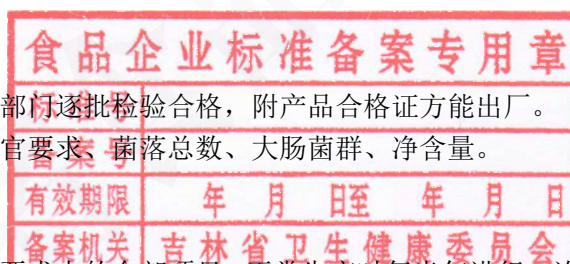 食品企业标准备案专用章
标准号
部门逐批检验合格，附产品合格证方能出厂。
备案号
官要求、菌落总数、大肠菌群、净含量。
有效期限 年 月 日至 年 月 日
备案机关 吉林省卫生健康委员会